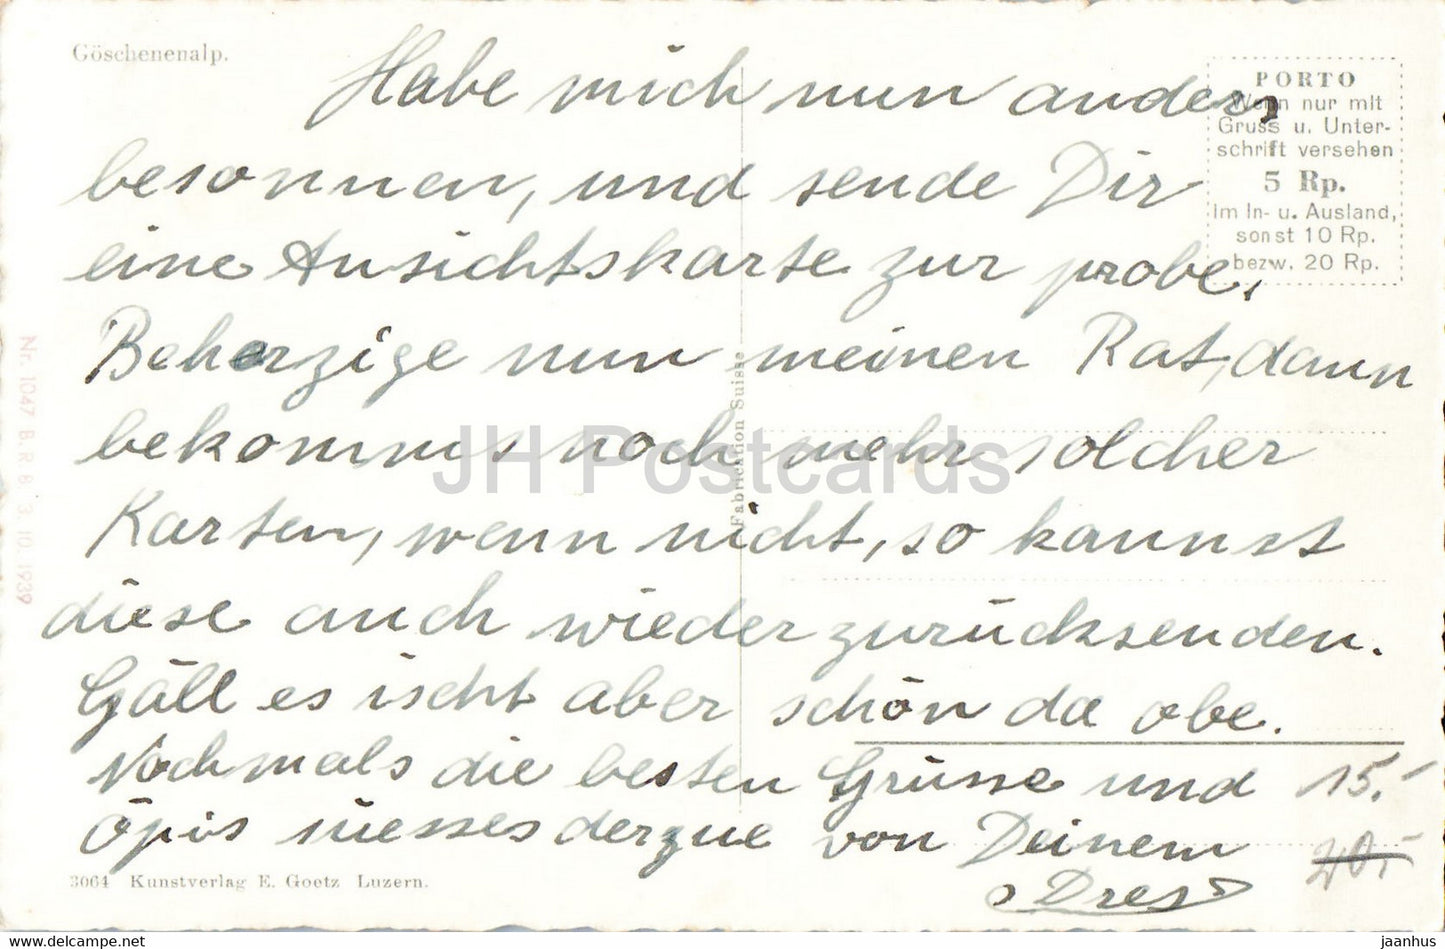 Göschenenalp.
PORTO
Wenn nur mit
Gruss u. Unter-
schrift versehen
5 Rp.
Im In- u. Ausland,
sonst 10 Rp.
bezw. 20 Rp.
Habe mich nun anders
besonnen, und sende Dir
eine Ansichtskarte zur probe.
Beherzige nun meinen Rat, dann
bekomms noch mehr solcher
Karten, wenn nicht, so kannst
diese auch wieder zurücksenden.
Gäll es ischt aber schön da obe.
Nochmals die besten Grüsse und
öpis süesses derzue von Deinem
Dres
15.-
20.-
Fabrication Suisse
Nr. 1047 B. R. 6. 3. 10. 1939
3064 Kunstverlag E. Goetz Luzern.
JH Postcards
delcampe.net
jaanhus